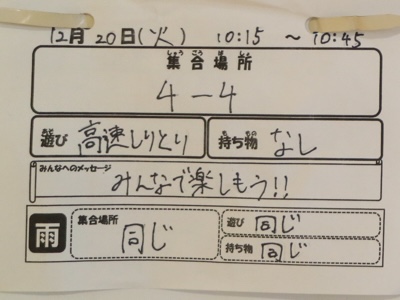 12月 20日(火) 10:15 ～ 10:45
集合場所
4-4
遊び 高速しりとり 持ち物 なし
みんなへのメッセージ
みんなで楽しもう!!
雨 集合場所 同じ 遊び 同じ
持ち物 同じ